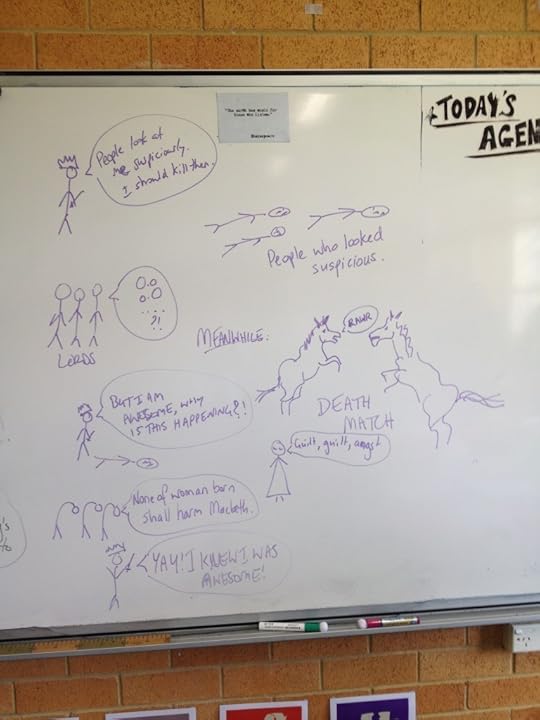 "The earth has music for
those who listen."
Shakespeare
*TODAY'S
AGEN
People look at
me suspiciously.
I should kill them.
People who looked
suspicious.
?!
LORDS
MEANWHILE:
RAWR
BUT I AM
AWESOME, WHY
IS THIS HAPPENING?!
DEATH
MATCH
Guilt, guilt, angst
None of woman born
shall harm Macbeth.
YAY! I KNEW I WAS
AWESOME!
's
to